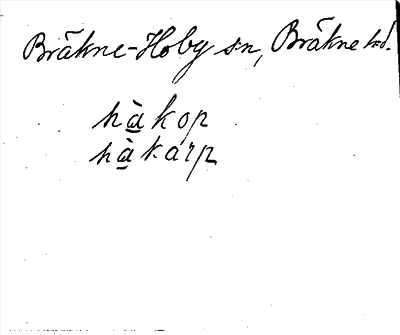 Bräkne-Hoby sn, Bräkne hd.
hà̲kop
hà̲karp